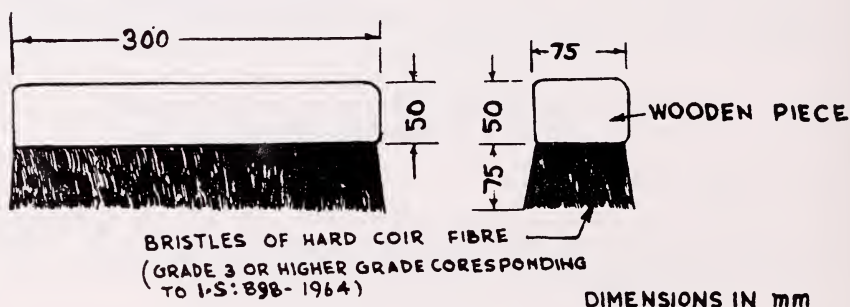 300
75
50
50
75
WOODEN PIECE
BRISTLES OF HARD COIR FIBRE
(GRADE 3 OR HIGHER GRADE CORESPONDING
TO I.S: 898-1964)
DIMENSIONS IN mm